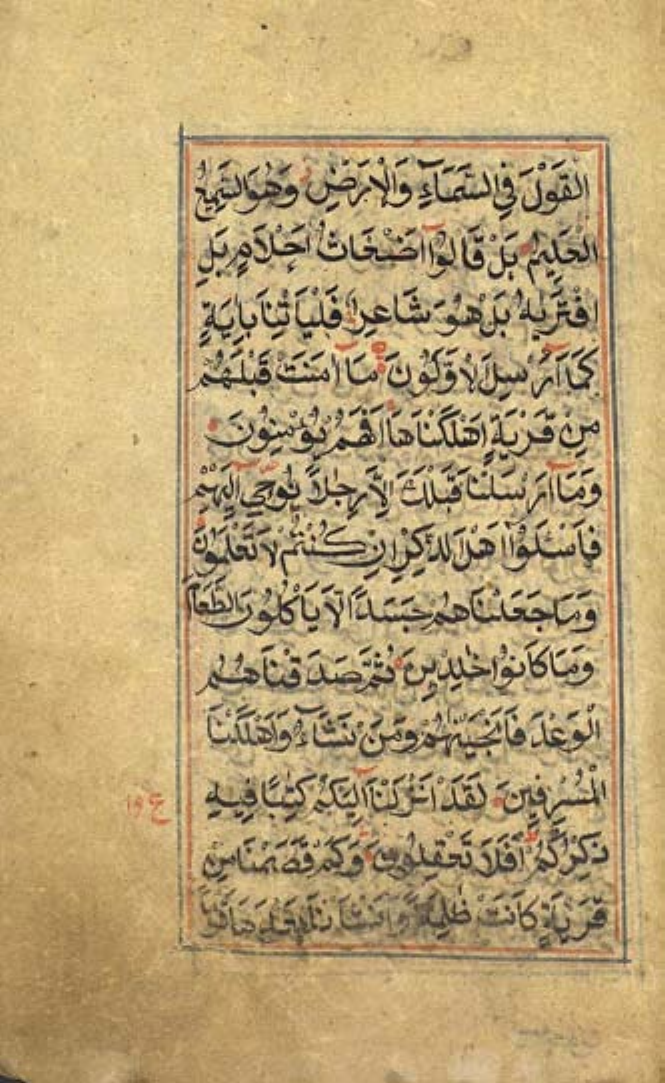 القَوْلَ فِي السَّمَاءِ وَالْاَرْضِ وَهُوَ السَّمِيعُ
العَلِيمُ بَلْ قَالُوْا اَضْغَاثُ اَحْلَامٍ بَلِ
افْتَرٰىهُ بَلْ هُوَ شَاعِرٌ فَلْيَأْتِنَا بِاٰيَةٍ
كَمَا اُرْسِلَ الْاَوَّلُونَ مَا اٰمَنَتْ قَبْلَهُمْ
مِنْ قَرْيَةٍ اَهْلَكْنَاهَا اَفَهُمْ يُؤْمِنُونَ
وَمَا اَرْسَلْنَا قَبْلَكَ اِلَّا رِجَالًا نُوحِي اِلَيْهِمْ
فَاسْئَلُوْا اَهْلَ الذِّكْرِ اِنْ كُنْتُمْ لَا تَعْلَمُونَ
وَمَا جَعَلْنَاهُمْ جَسَدًا لَا يَأْكُلُونَ الطَّعَامَ
وَمَا كَانُوْا خٰلِدِينَ ثُمَّ صَدَقْنَاهُمُ
الْوَعْدَ فَاَنْجَيْنٰهُمْ وَمَنْ نَشَاءُ وَاَهْلَكْنَا
الْمُسْرِفِينَ لَقَدْ اَنْزَلْنَا اِلَيْكُمْ كِتٰبًا فِيهِ
ذِكْرُكُمْ اَفَلَا تَعْقِلُونَ وَكَمْ قَصَمْنَا مِنْ
قَرْيَةٍ كَانَتْ ظٰلِمَةً وَاَنْشَأْنَا بَعْدَهَا قَوْمًا